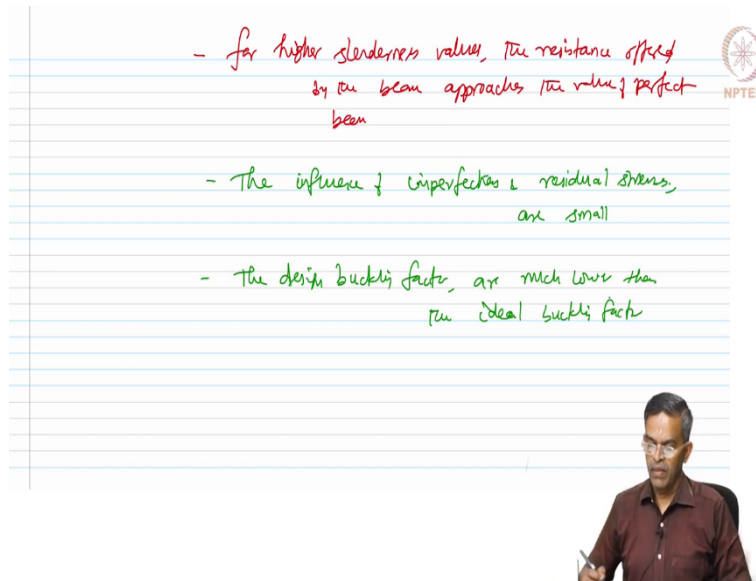 - For higher slenderness values, the resistance offered
by the beam approaches the value of perfect
beam
NPTEL
- The influence of imperfections & residual stresses,
are small
- The design buckling factors, are much lower than
the ideal buckling factor